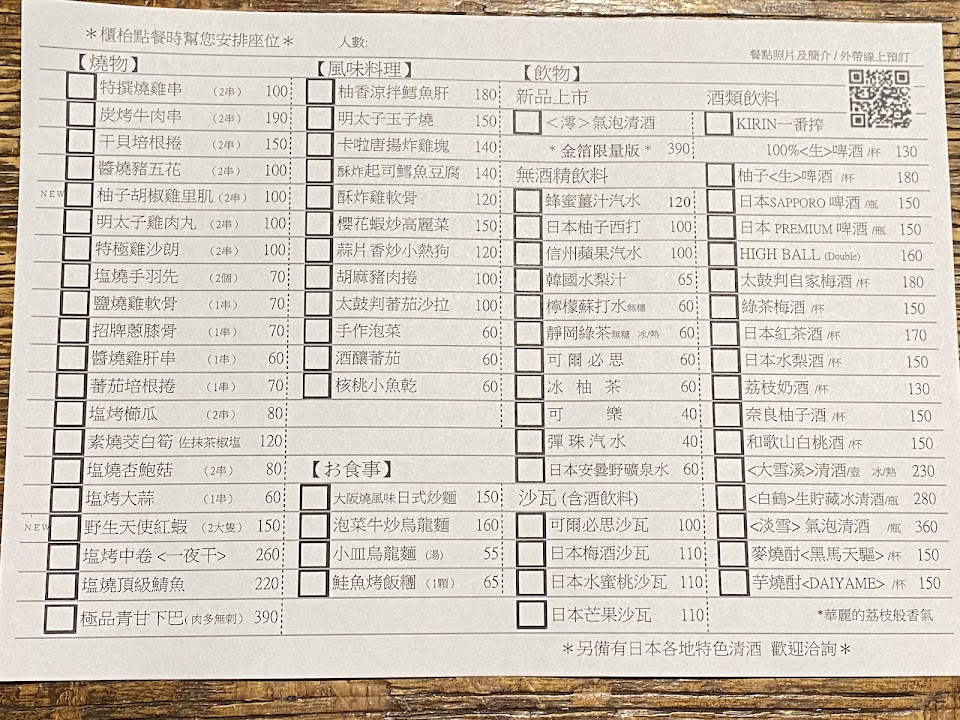 ＊櫃枱點餐時幫您安排座位＊
人數:
餐點照片及簡介 / 外帶線上預訂
【燒物】
特撰燒雞串 (2串) 100
炭烤牛肉串 (2串) 190
干貝培根捲 (2串) 150
醬燒豬五花 (2串) 100
NEW 柚子胡椒雞里肌 (2串) 100
明太子雞肉丸 (2串) 100
特極雞沙朗 (2串) 100
塩燒手羽先 (2個) 70
鹽燒雞軟骨 (1串) 70
招牌蔥膝骨 (1串) 70
醬燒雞肝串 (1串) 60
蕃茄培根捲 (1串) 70
塩烤櫛瓜 (2串) 80
素燒茭白筍 佐抹茶椒塩 120
塩燒杏鮑菇 (2串) 80
塩烤大蒜 (1串) 60
NEW 野生天使紅蝦 (2大隻) 150
塩烤中卷 <一夜干> 260
塩燒頂級鯖魚 220
極品青甘下巴(肉多無刺) 390
【風味料理】
柚香涼拌鱈魚肝 180
明太子玉子燒 150
卡啦唐揚炸雞塊 140
酥炸起司鱈魚豆腐 140
酥炸雞軟骨 120
櫻花蝦炒高麗菜 150
蒜片香炒小熱狗 120
胡麻豬肉捲 100
太鼓判蕃茄沙拉 100
手作泡菜 60
酒釀蕃茄 60
核桃小魚乾 60
【お食事】
大阪燒風味日式炒麵 150
泡菜牛炒烏龍麵 160
小皿烏龍麵 (湯) 55
鮭魚烤飯糰 (1顆) 65
【飲物】
新品上市
＜澪＞氣泡清酒
* 金箔限量版 * 390
無酒精飲料
蜂蜜薑汁汽水 120
日本柚子西打 100
信州蘋果汽水 100
韓國水梨汁 65
檸檬蘇打水無糖 60
靜岡綠茶無糖 冰/熱 60
可爾必思 60
冰柚茶 60
可樂 40
彈珠汽水 40
日本安曇野礦泉水 60
沙瓦 (含酒飲料)
可爾必思沙瓦 100
日本梅酒沙瓦 110
日本水蜜桃沙瓦 110
日本芒果沙瓦 110
酒類飲料
KIRIN一番搾
100%<生>啤酒 /杯 130
柚子<生>啤酒 /杯 180
日本SAPPORO 啤酒 /瓶 150
日本 PREMIUM 啤酒 /瓶 150
HIGH BALL (Double) 160
太鼓判自家梅酒 /杯 180
綠茶梅酒 /杯 150
日本紅茶酒 /杯 170
日本水梨酒 /杯 150
荔枝奶酒 /杯 130
奈良柚子酒 /杯 150
和歌山白桃酒 /杯 150
<大雪溪>清酒/壺 冰/熱 230
<白鶴>生貯藏冰清酒/瓶 280
<淡雪> 氣泡清酒 /瓶 360
麥燒酎<黑馬天驅> /杯 150
芋燒酎<DAIYAME> /杯 150
*華麗的荔枝般香氣
＊另備有日本各地特色清酒 歡迎洽詢＊